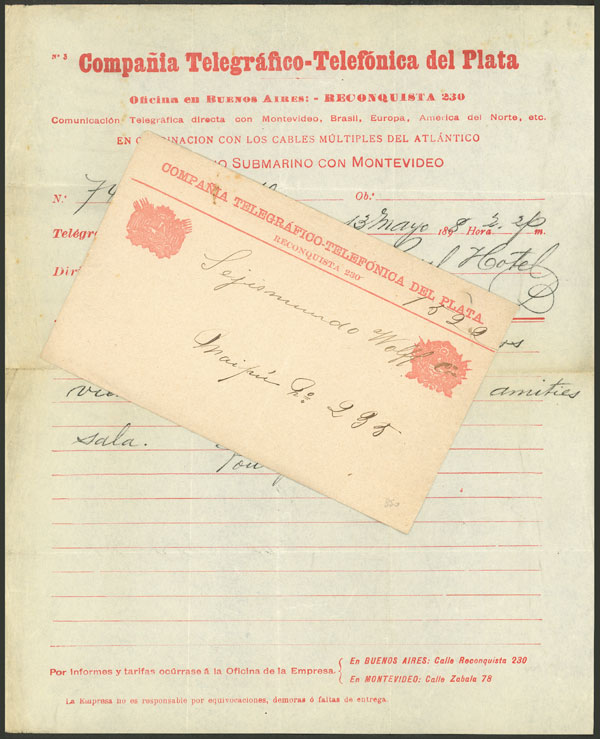 Nº 3
Compañia Telegráfico-Telefónica del Plata
Oficina en BUENOS AIRES: - RECONQUISTA 230
Comunicación Telegráfica directa con Montevideo, Brasil, Europa, América del Norte, etc.
EN CO INACION CON LOS CABLES MÚLTIPLES DEL ATLÁNTICO
O SUBMARINO CON MONTEVIDEO
N.º 74 Ob.:
Telégr 13 Mayo 188 Hora 2. 2 p m.
Dir Hotel
amities
sala.
COMPAÑIA TELEGRÁFICO-TELEFÓNICA DEL PLATA
RECONQUISTA 230
1522
Sejismundo Wolff
Maipú No 295
Por informes y tarifas ocúrrase á la Oficina de la Empresa.
En BUENOS AIRES: Calle Reconquista 230
En MONTEVIDEO: Calle Zabala 78
La Empresa no es responsable por equivocaciones, demoras ó faltas de entrega.